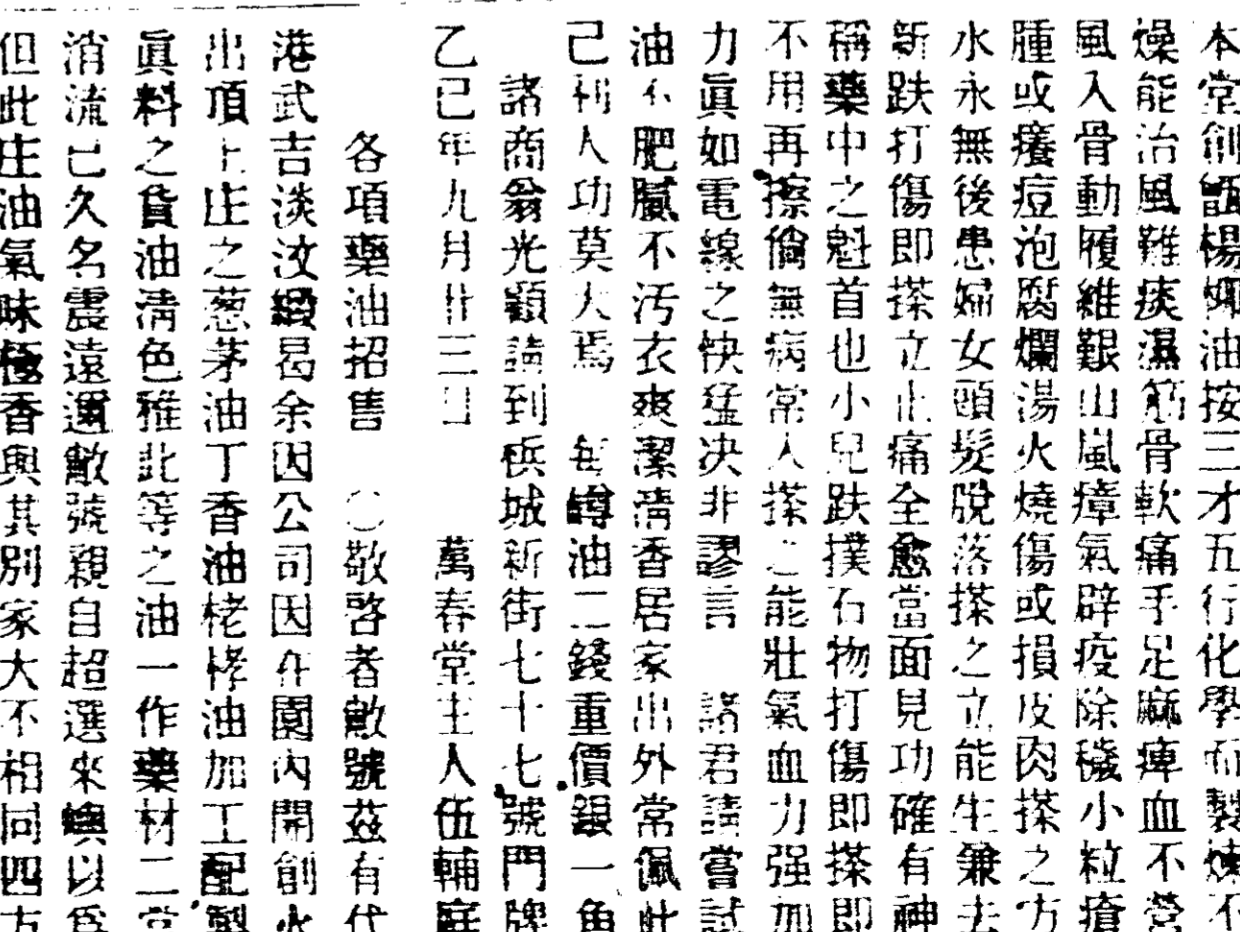 本堂創甑楊娜油按三才五行化學而製煉不
燥能治風難痰濕筋骨軟痛手足麻痺血不營
風入骨動履維艱山嵐瘴氣辟疫除穢小粒瘡
腫或癢痘泡腐爛湯火燒傷或損皮肉搽之方
水永無後患婦女頭髮脫落搽之立能生兼去
新跌打傷即搽立止痛全愈當面見功確有神
稱藥中之魁首也小兒跌撲石物打傷即搽即
不用再擦倘無病常人搽之能壯氣血力强加
力眞如電線之快猛决非謬言 諸君請嘗試
油不肥膩不汚衣爽潔清香居家出外常佩此
己利人功莫大焉 每罇油二錢重價銀一角
諸商翁光顧請到梹城新街七十七號門牌
乙巳年九月廿三日 萬春堂主人伍輔庭
各項藥油招售 〇敬啓者敝號茲有代
港武吉淡汶曷余因公司因在園內開創火
出頂上庄之葱茅油丁香油栳栙油加工配製
眞料之貨油淸色雅此等之油一作藥材二當
消流已久名震遠邇敝號親自超選來嶼以爲
但此庄油氣味極香與其別家大不相同四方